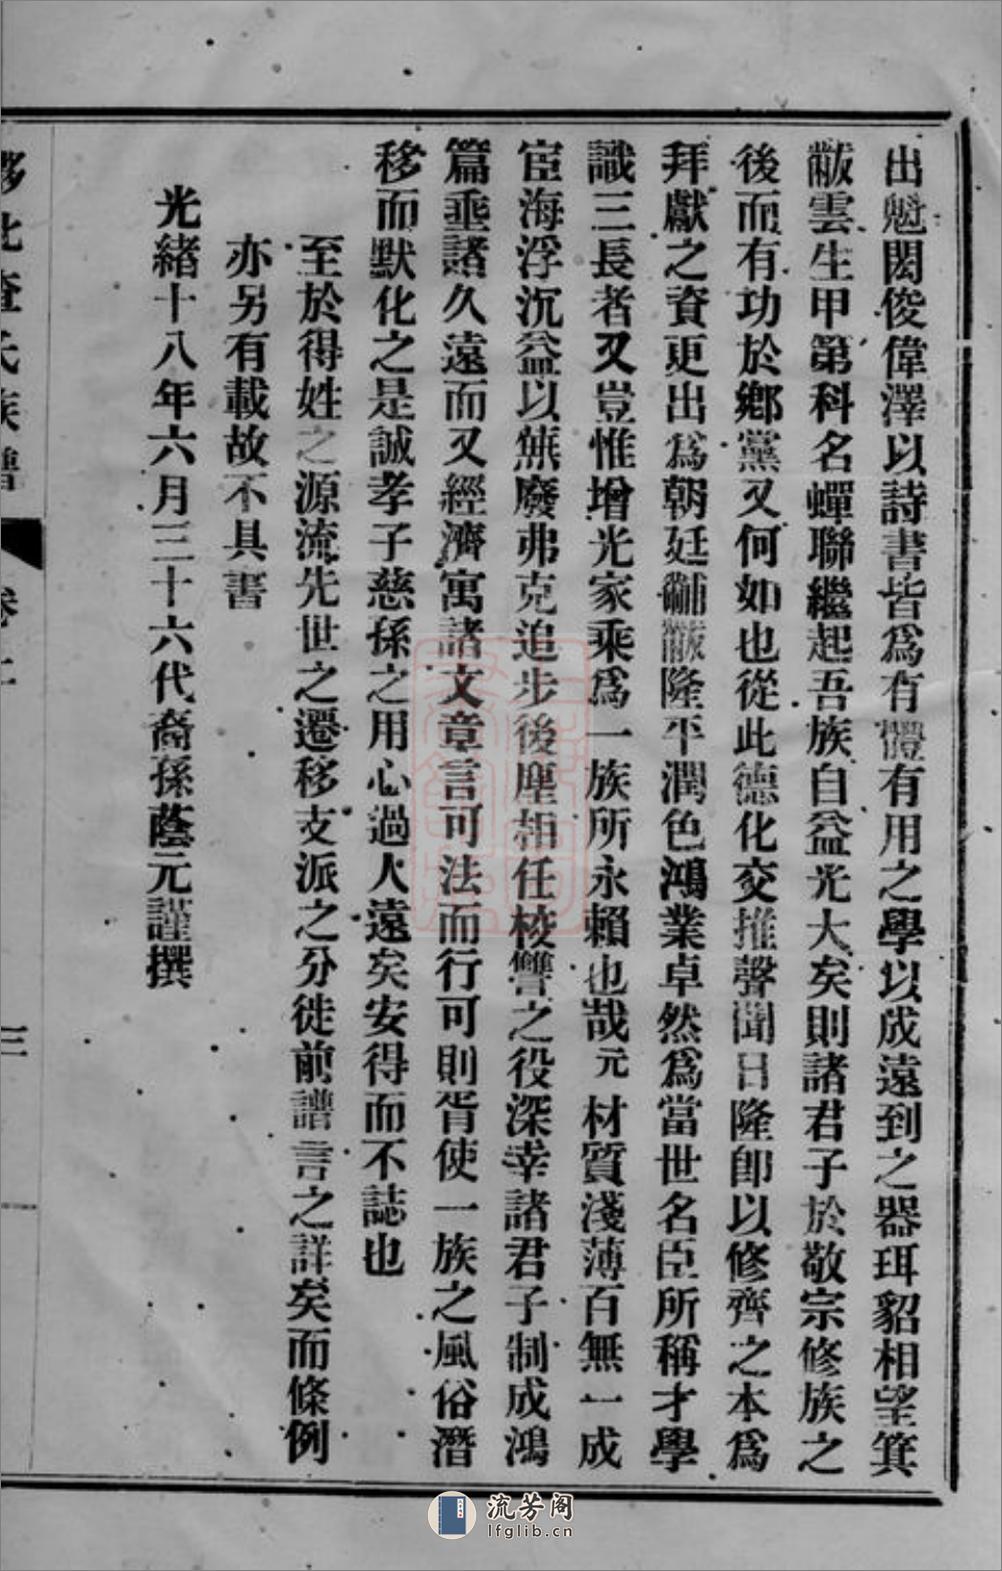 出魁閎俊偉澤以詩書皆爲有體有用之學以成遠到之器珥貂相望箕
黻雲生甲第科名蟬聯繼起吾族自益光大矣則諸君子於敬宗修族之
後而有功於鄉黨又何如也從此德化交推聲聞日隆卽以修齊之本爲
拜獻之資更出爲朝廷黼黻隆平潤色鴻業卓然爲當世名臣所稱才學
識三長者又豈惟增光家乘爲一族所永賴也哉元材質淺薄百無一成
宦海浮沉益以蕪廢弗克追步後塵相任校讐之役深幸諸君子制成鴻
篇垂諸久遠而又經濟寓諸文章言可法而行可則胥使一族之風俗潛
移而默化之是誠孝子慈孫之用心過人遠矣安得而不誌也
至於得姓之源流先世之遷移支派之分徙前譜言之詳矣而條例
亦另有載故不具書
光緒十八年六月三十六代裔孫蔭元謹撰
查氏族譜
三
流芳阁
lfglib.cn